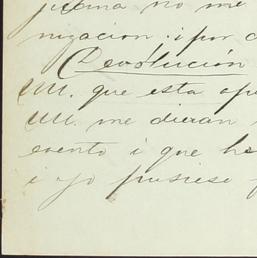 no me
nizacion: i por
Devolución
UU. que esta
UU. me dieran
evento i que
i yo pusiese